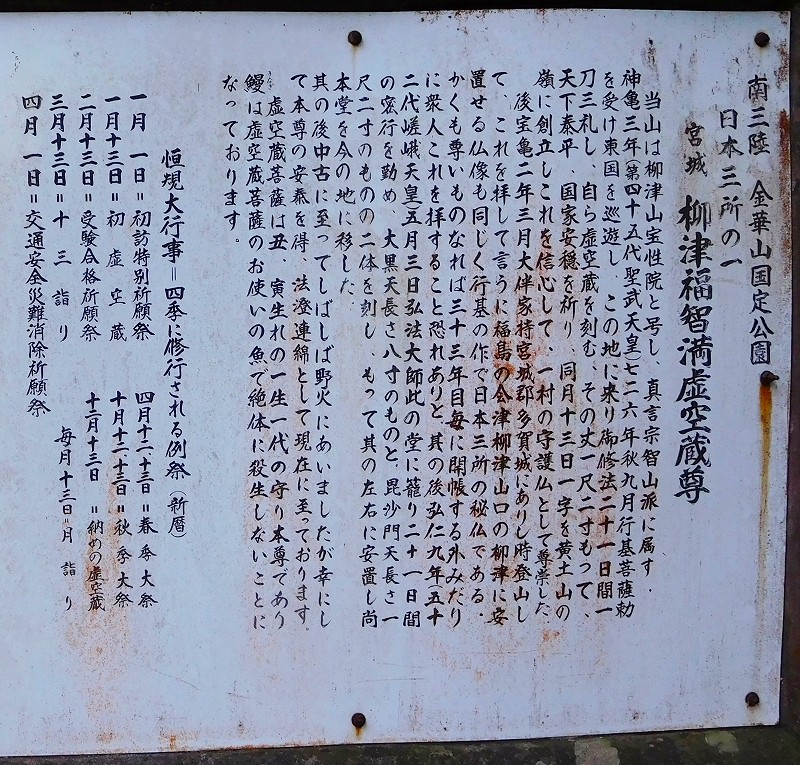 南三陸 金華山国定公園
日本三所の一
宮城 柳津福智満虚空蔵尊
当山は柳津山宝性院と号し、真言宗智山派に属す.
神亀三年(第四十五代聖武天皇)七二六年秋九月行基菩薩勅
を受け東国を巡遊し、この地に来り御修法二十一日間一
刀三礼し、自ら虚空蔵を刻む、その丈一尺二寸もって、
天下泰平、国家安穏を祈り、同月十三日一宇を黄土山の
嶺に創立しこれを信心して、一村の守護仏として尊崇した、
後宝亀二年三月大伴家持宮城郡多賀城にありし時登山し
て、これを拝して言うに福島の会津柳津山口の柳津に安
置せる仏像も同じく行基の作で日本三所の秘仏である.
かくも尊いものなれば三十三年目毎に開帳する外みだり
に衆人これを拝すること恐れありと、其の後弘仁九年五十
二代嵯峨天皇五月三日弘法大師此の堂に籠り二十一日間
の密行を勤め、大黒天長さ八寸のものと、毘沙門天長さ一
尺二寸のものの二体を刻し、もって其の左右に安置し尚
本堂を今の地に移した.
其の後中古に至ってしばしば野火にあいましたが幸にし
て本尊の安泰を得、法澄連綿として現在に至っております.
虚空蔵菩薩は丑、寅生れの一生一代の守り本尊であり
鰻は虚空蔵菩薩のお使いの魚で絶体に殺生しないことに
なっております。
恒規大行事＝四季に修行される例祭(新暦)
一月 一日＝初詣特別祈願祭
四月十二十三日＝春季大祭
一月十三日＝初虚空蔵
十月十二十三日＝秋季大祭
二月十三日＝受験合格祈願祭
十二月十三日＝納めの虚空蔵
三月十三日＝十三詣り
毎月十三日＝月詣り
四月 一日＝交通安全災難消除祈願祭